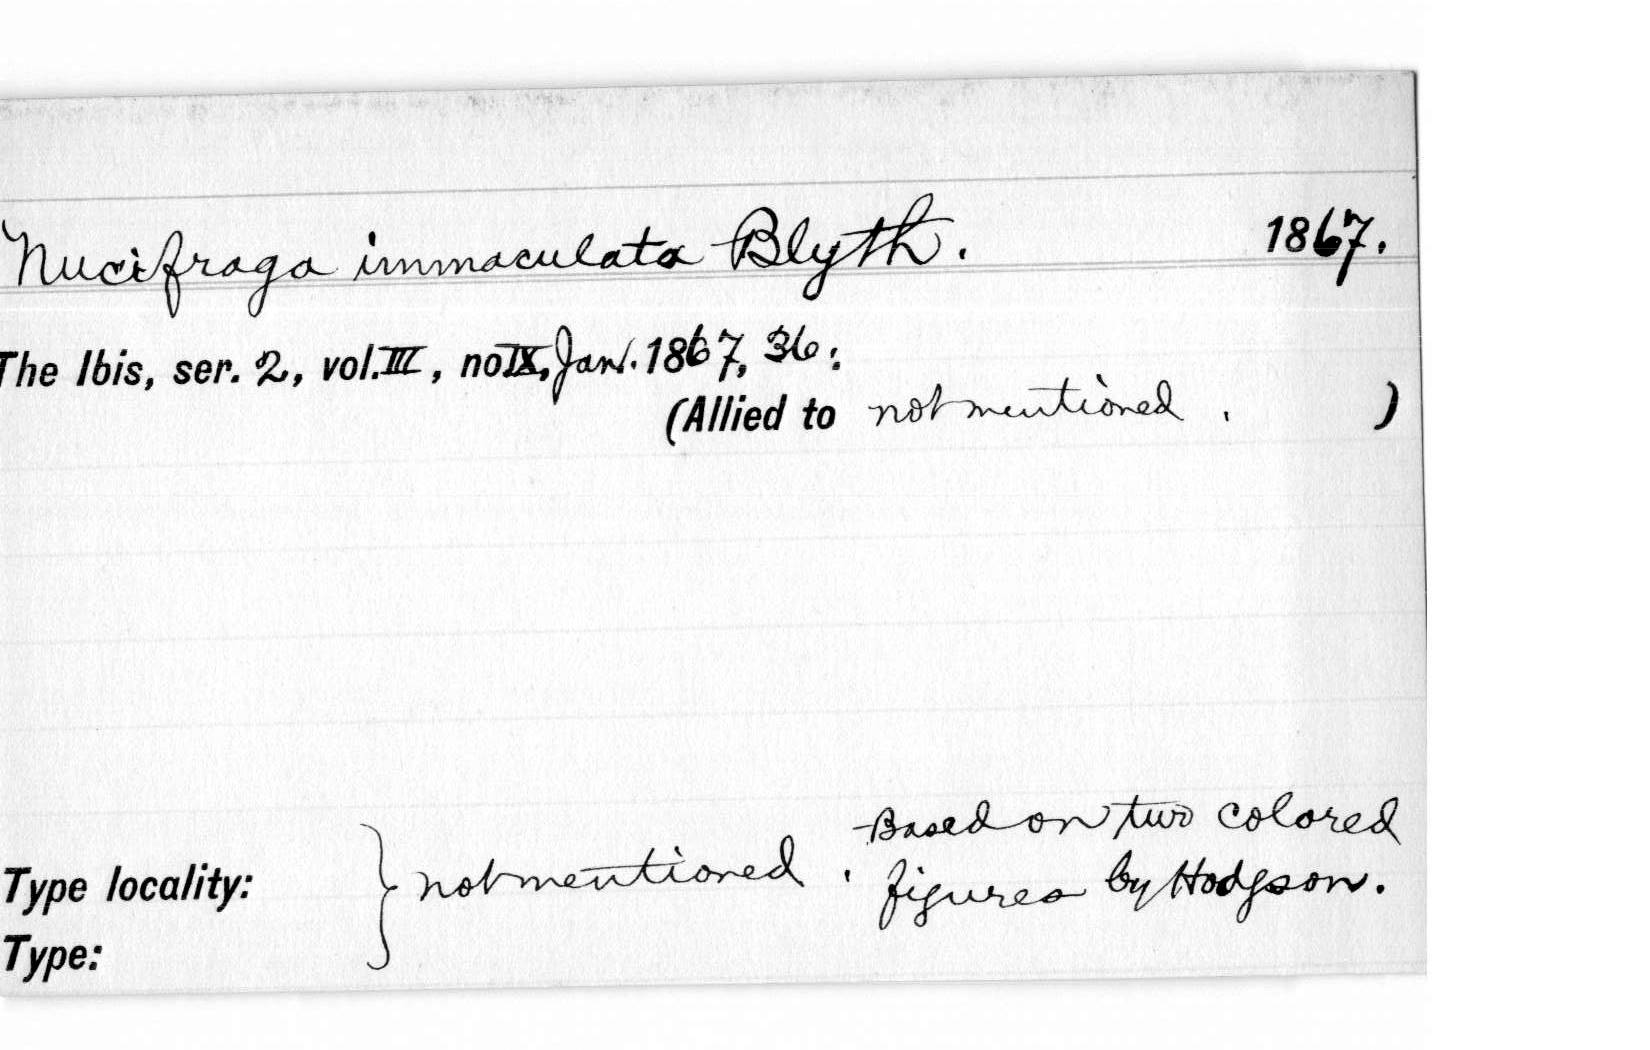 Nucifraga immaculata Blyth. 1867.
The Ibis, ser. 2, vol. III, no. IX, Jan. 1867, 36:
(Allied to not mentioned . )
Based on two colored
Type locality: } not mentioned . figures by Hodgson.
Type: